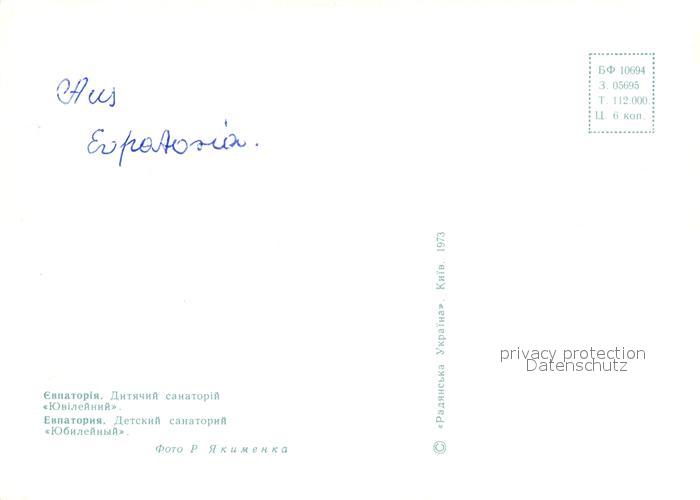 Aus
Eupatoria.
БФ 10694
З. 05695
Т. 112.000.
Ц. 6 коп.
© «Радянська Україна». Київ. 1973
privacy protection
Datenschutz
Євпаторія. Дитячий санаторій
«Ювілейний».
Евпатория. Детский санаторий
«Юбилейный».
Фото Р Якименка